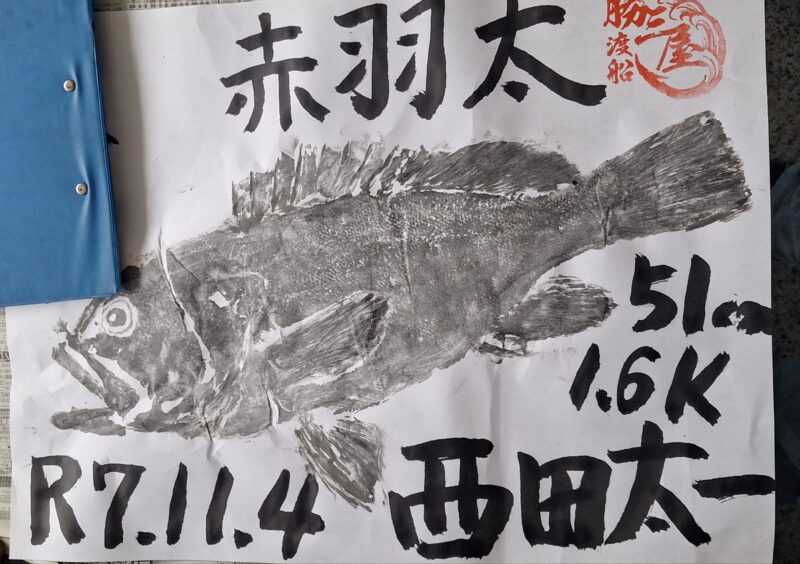 赤羽太
勝三屋
渡船
51cm
1.6K
R7.11.4 西田太一